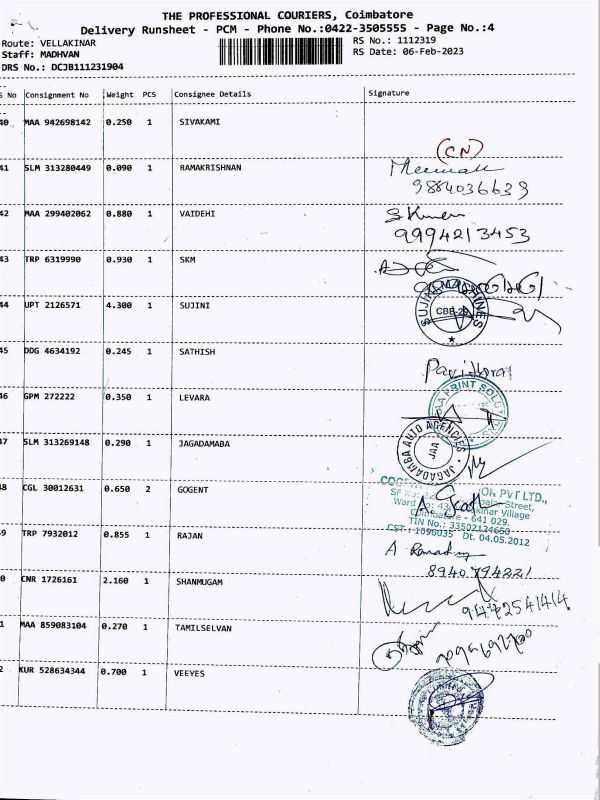 THE PROFESSIONAL COURIERS, Coimbatore
Delivery Runsheet - PCM - Phone No.:0422-3505555 - Page No.:4
Route: VELLAKINAR
RS No.: 1112319
Staff: MADHVAN
RS Date: 06-Feb-2023
DRS No.: DCJB111231904
S No Consignment No Weight PCS Consignee Details Signature
40 MAA 942698142 0.250 1 SIVAKAMI
(CN)
41 SLM 313280449 0.090 1 RAMAKRISHNAN
9884036639
42 MAA 299402062 0.880 1 VAIDEHI
S Kumar
9994213453
43 TRP 6319990 0.930 1 SKM
44 UPT 2126571 4.300 1 SUJINI
CBE-29
45 DDG 4634192 0.245 1 SATHISH
Pavithra
46 GPM 272222 0.350 1 LEVARA
PRINT SOLUTIONS
47 SLM 313269148 0.290 1 JAGADAMABA
JAGADAMBA AUTO AGENCIES
JAA
48 CGL 30012631 0.650 2 GOGENT
PVT LTD.,
Street,
Village
Coimbatore - 641 029.
TIN No.: 33502124660
CST : 1096035 Dt. 04.05.2012
49 TRP 7932012 0.855 1 RAJAN
8940794221
50 CNR 1726161 2.160 1 SHANMUGAM
9472541414
51 MAA 859083104 0.270 1 TAMILSELVAN
52 KUR 528634344 0.700 1 VEEYES